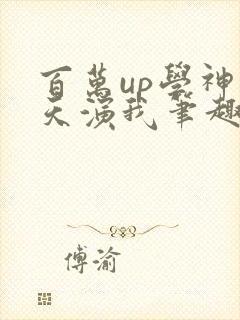 百萬up學神
天演我筆趣
傅渝